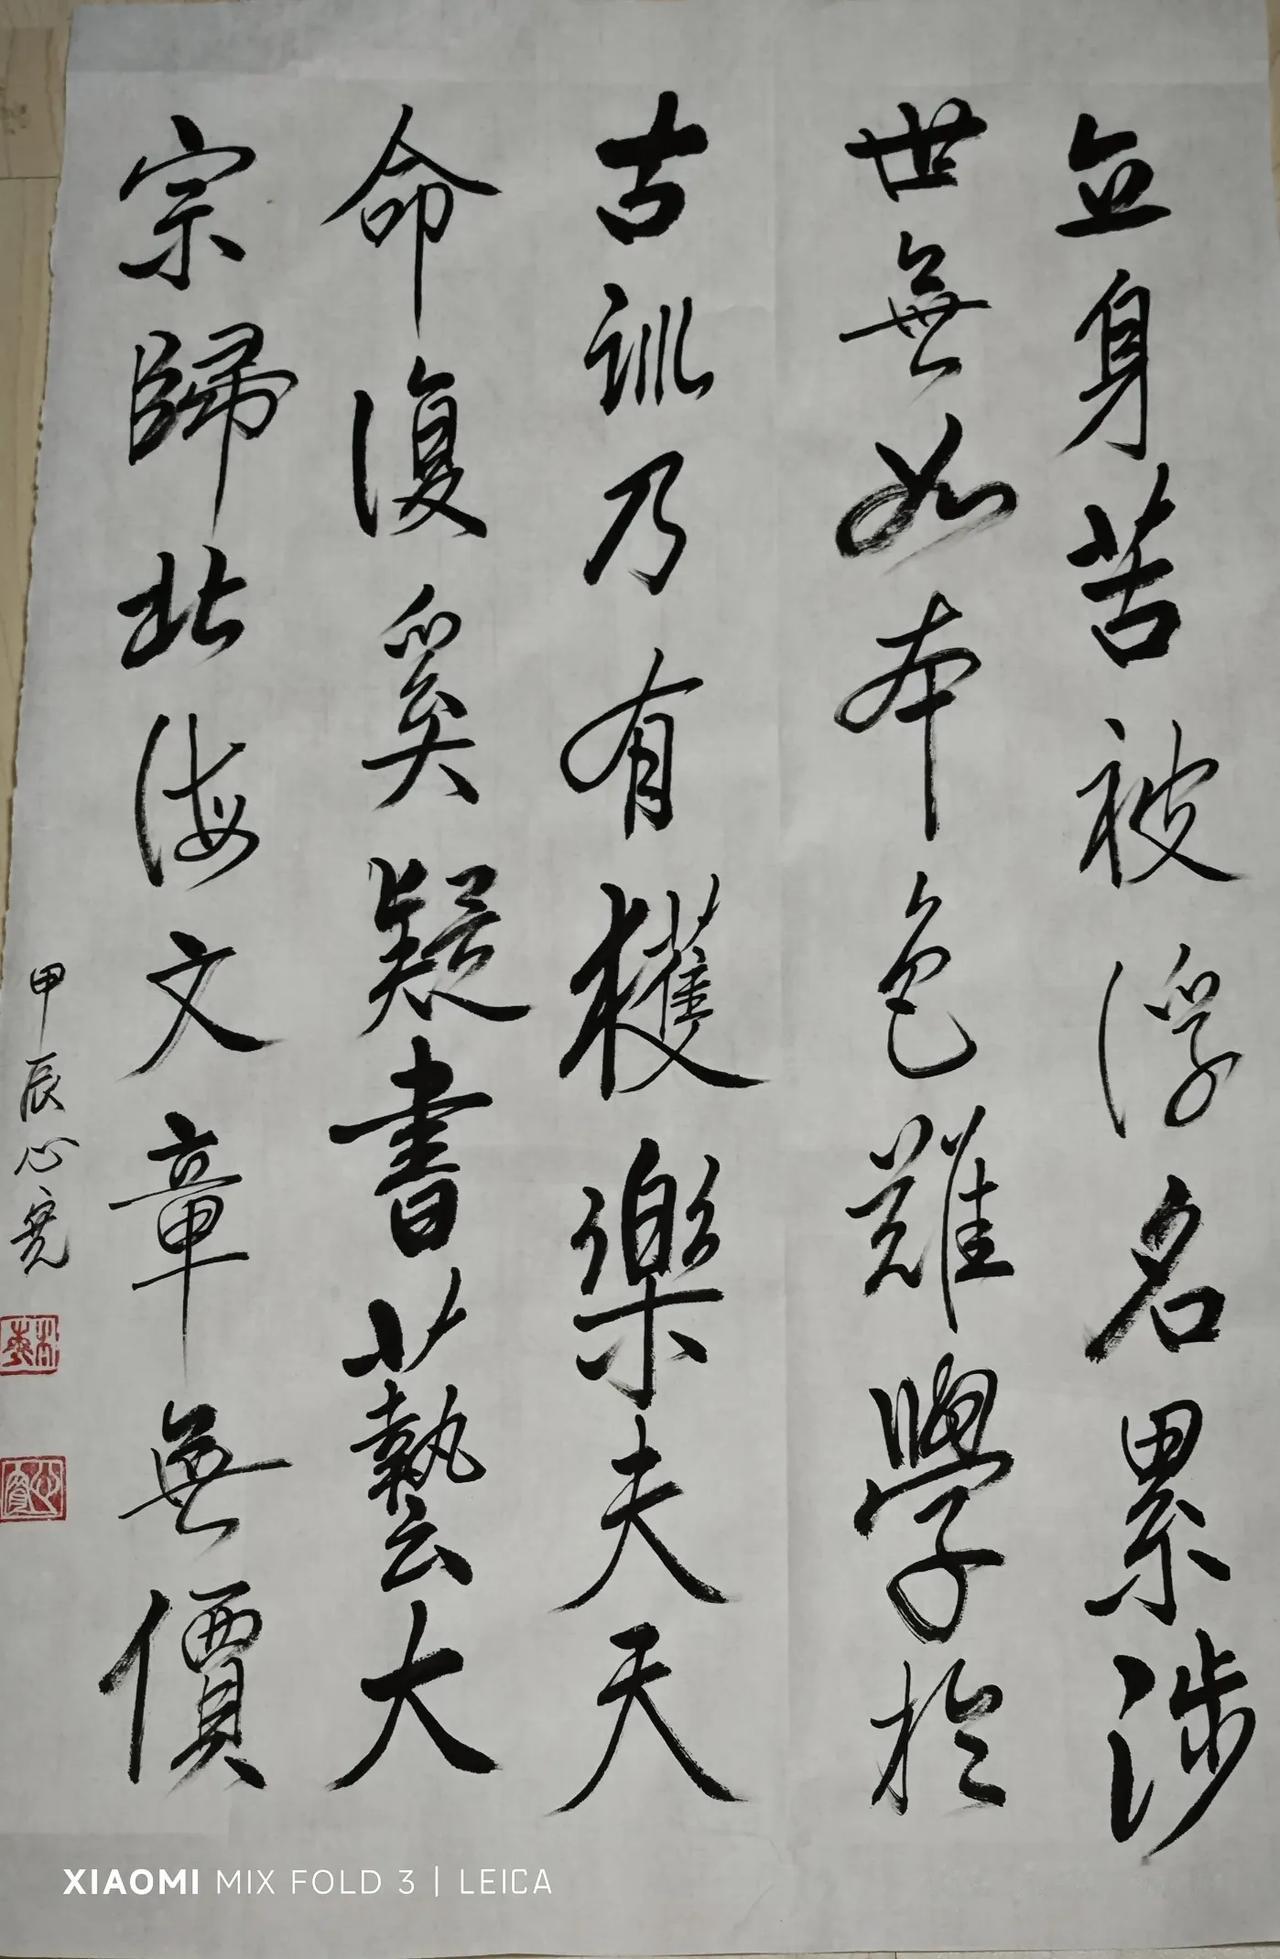 立身苦被浮名累涉
世無如本色難學於
古訓乃有獲樂夫天
命復奚疑書藝大
宗歸北海文章無價
甲辰心寬
XIAOMI MIX FOLD 3 | LEICA